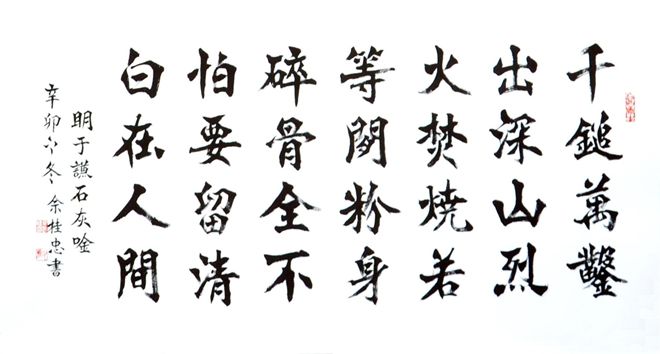 千鎚萬鑿
出深山烈
火焚燒若
等閒粉身
碎骨全不
怕要留清
白在人間
明于謙石灰唫
辛卯冬 余桂忠書